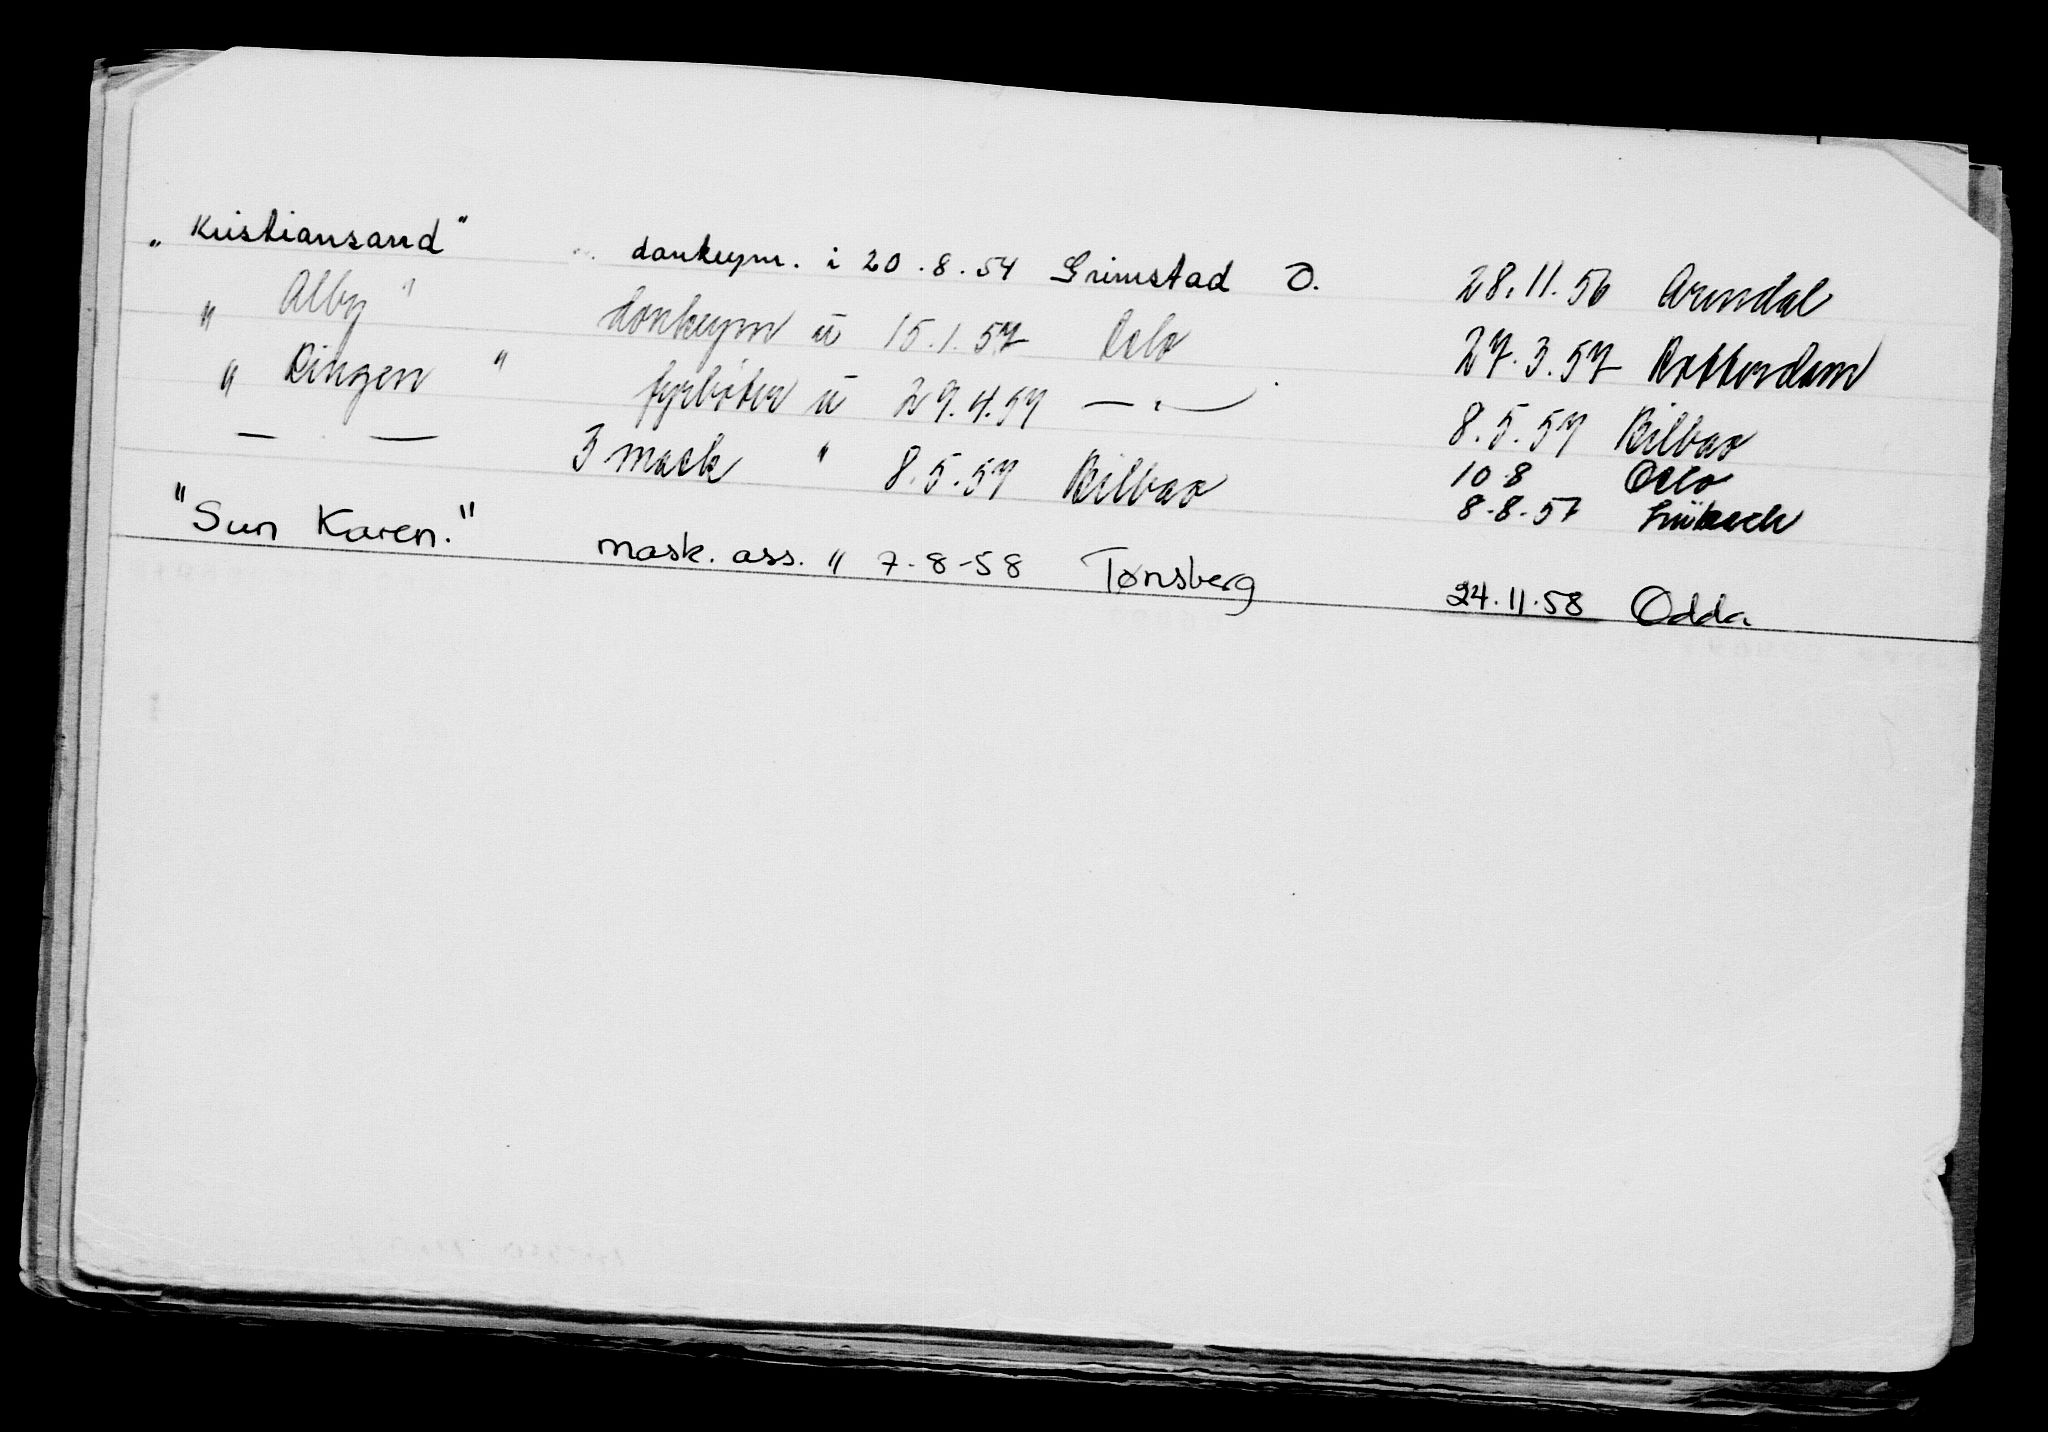 „ Kristiansand" donkeym. i 20.8.54 Grimstad O. 28.11.56 Arendal
" Alby " donkeym " 15.1.57 Oslo 27.3.57 Rotterdam
" Ringen " fyrbøter " 29.4.57 — " — 8.5.57 Bilbao
— — 3 mask " 8.5.57 Bilbao 10 8 Oslo
8-8.57 Lübeck
"Sun Karen." mask. ass. " 7-8-58 Tønsberg 24.11.58 Odda.